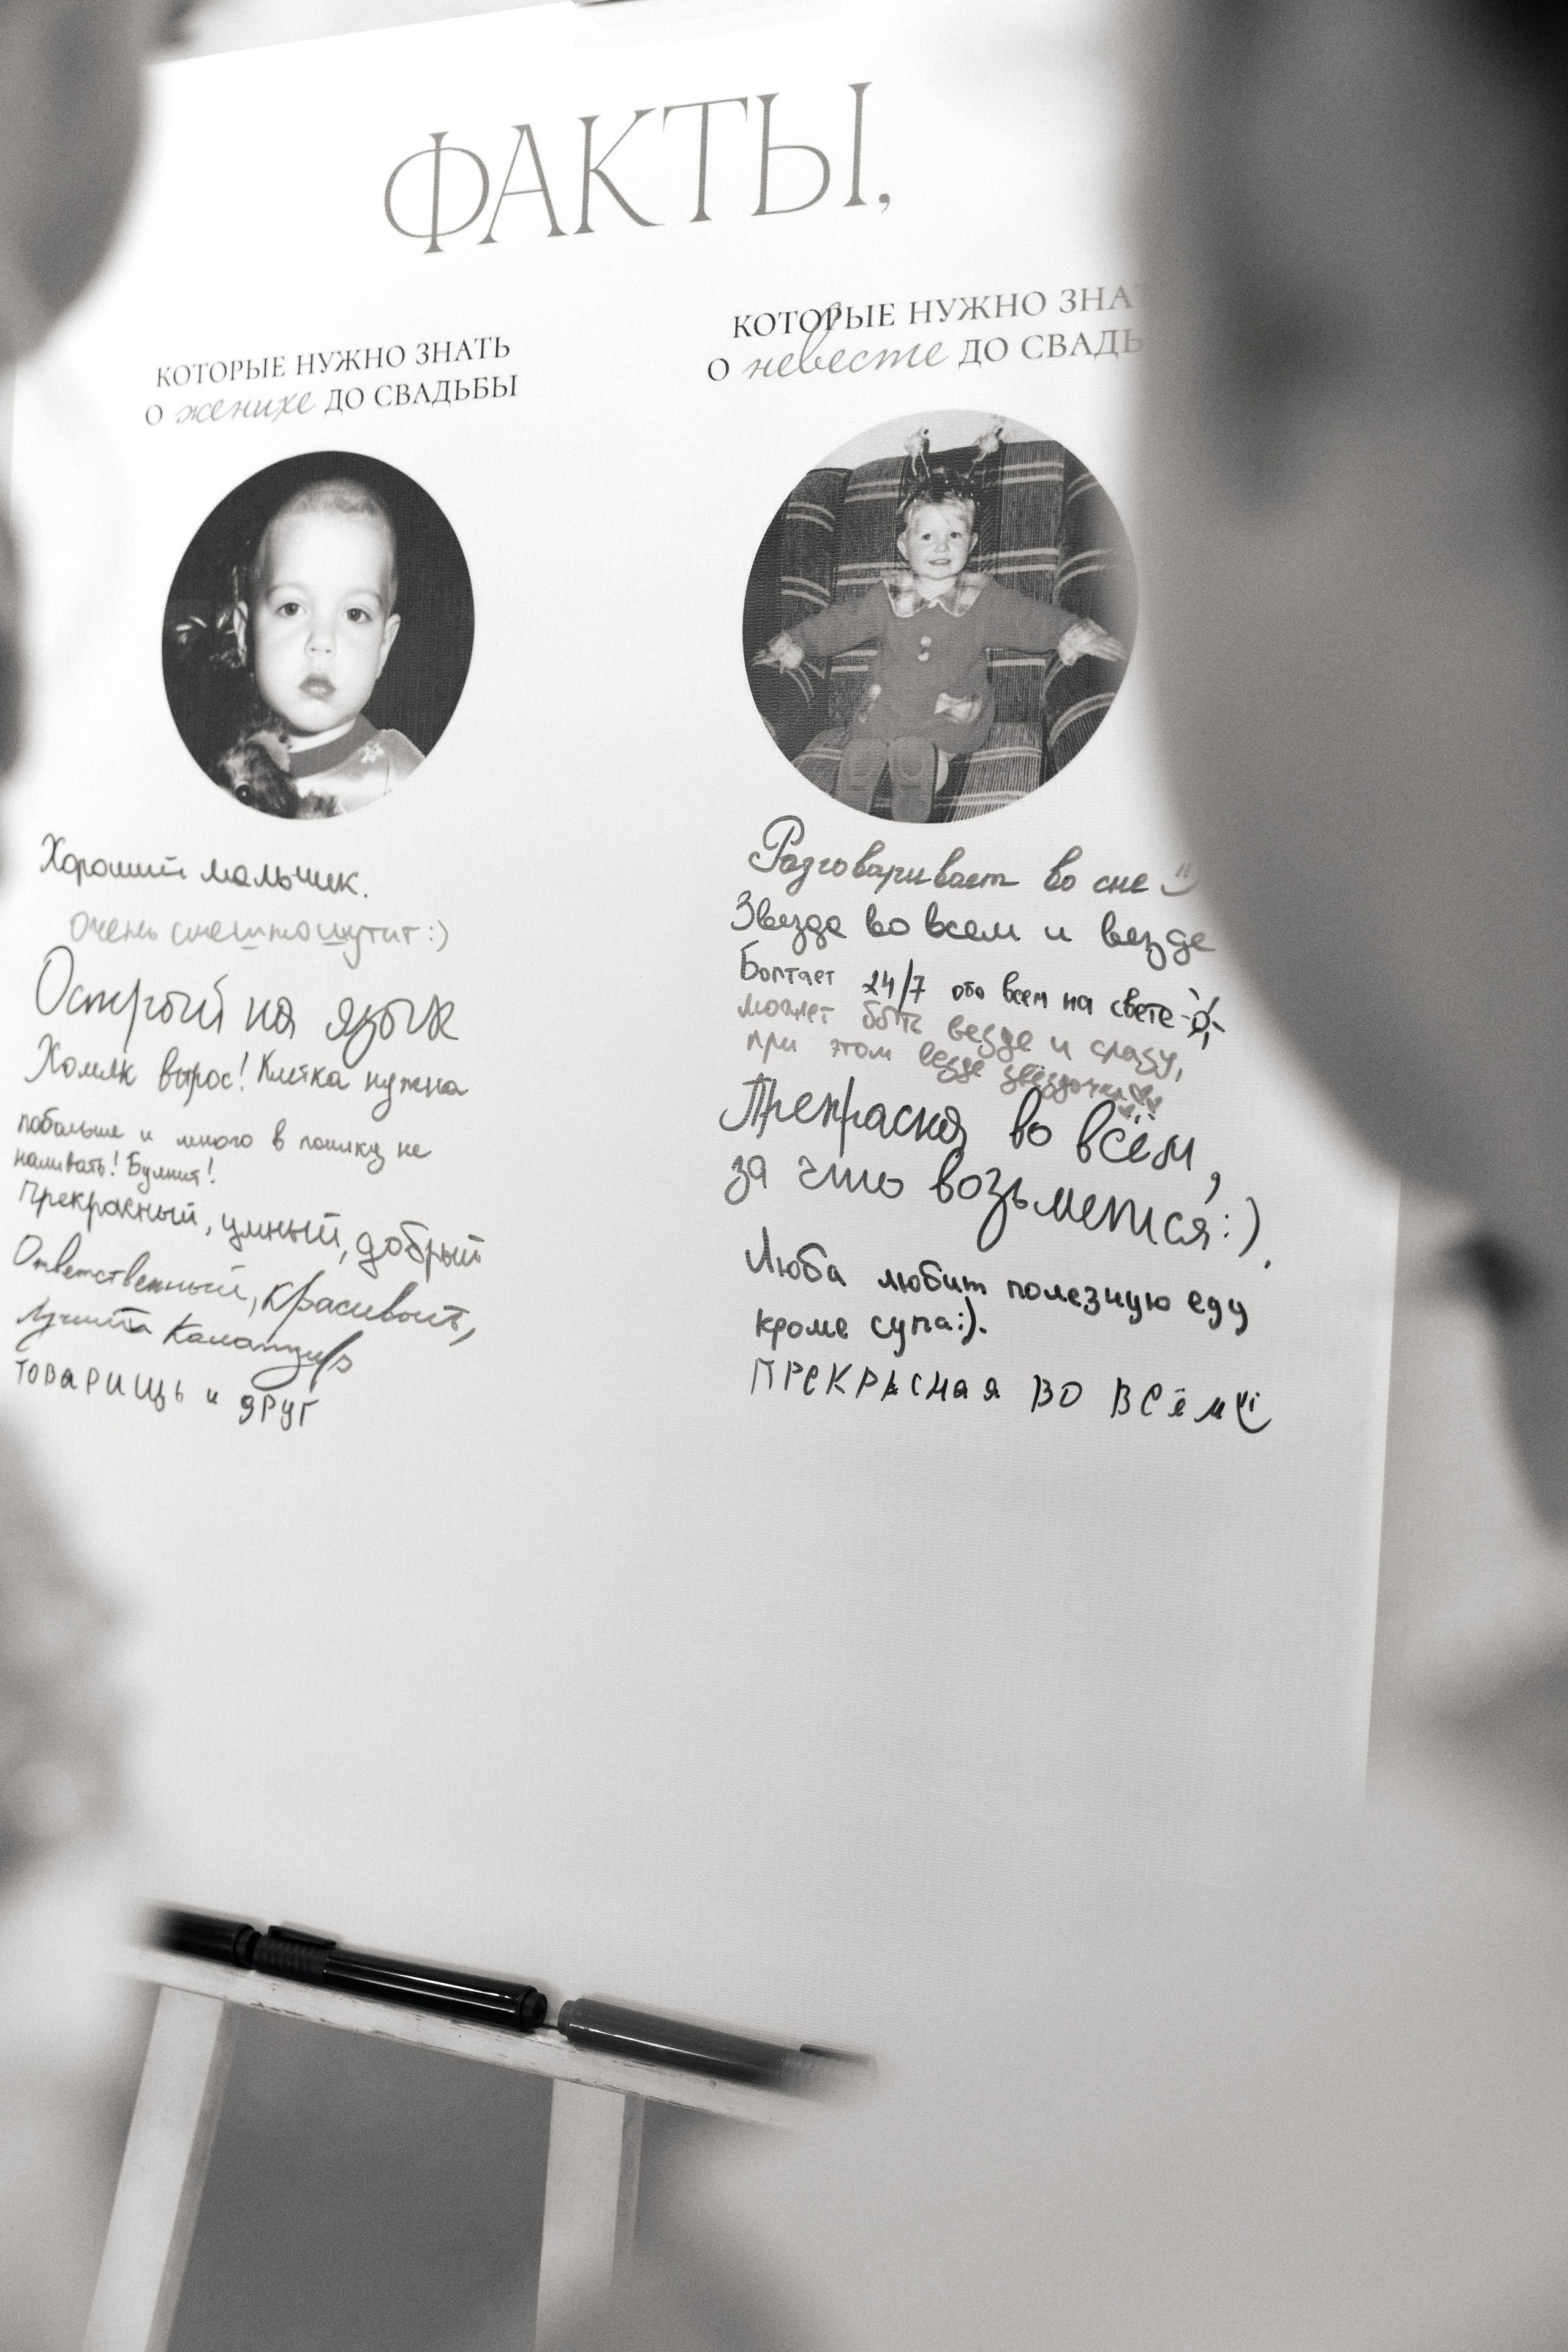 ФАКТЫ,
КОТОРЫЕ НУЖНО ЗНАТЬ
О женихе ДО СВАДЬБЫ
Хороший мальчик.
очень смешно шутит :)
Острый на язык
Хомяк вырос! Клетка нужна
побольше и много в поилку не
наливать!
Прекрасный, умный, добрый
Ответственный, красивый,
лучший
товарищь и друг
КОТОРЫЕ НУЖНО
О невесте ДО
Разговаривает во сне
Звезда во всем и везде
Болтает 24/7 обо всем на свете
может быть везде и сразу,
при этом везде звёздочка
Прекрасна во всём,
за что возьмется :).
Люба любит полезную еду
кроме супа :).
ПРЕКРАСНАЯ ВО ВСЁМ